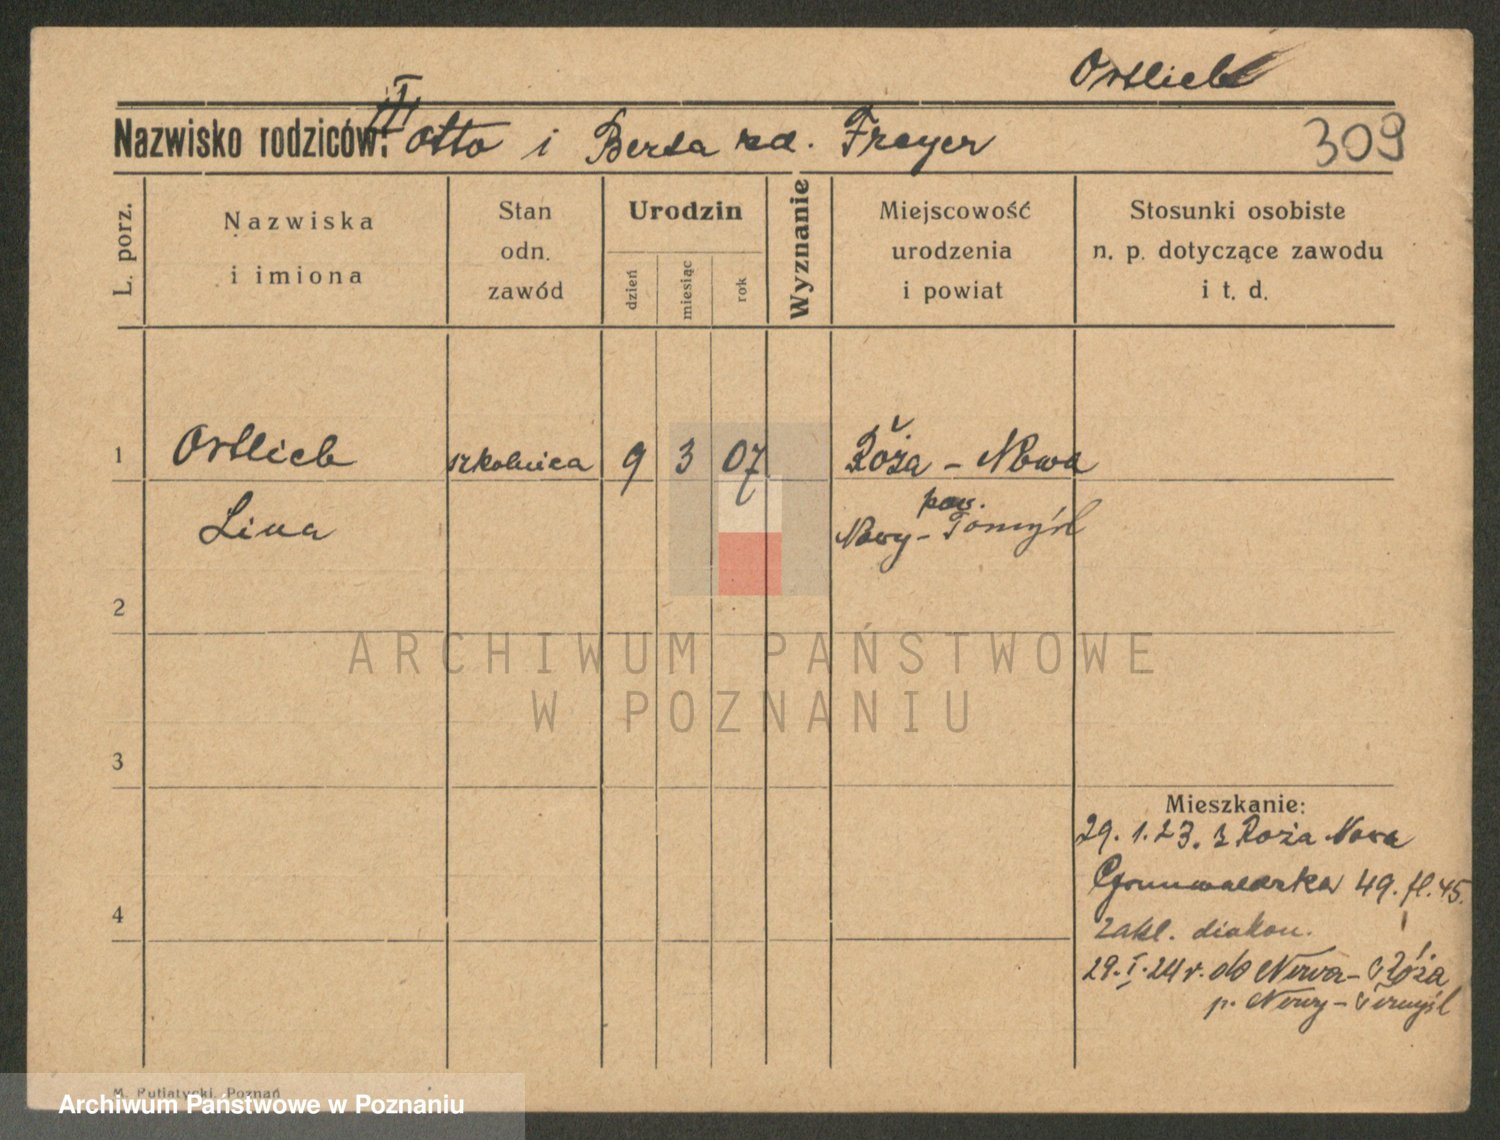 Ortlieb
III
Nazwisko rodziców: Otto i Berta rd. Freyer
309
L. porz.
Nazwiska
i imiona
Stan
odn.
zawód
Urodzin
dzień
miesiąc
rok
Wyznanie
Miejscowość
urodzenia
i powiat
Stosunki osobiste
n. p. dotyczące zawodu
i t. d.
1 Ortlieb szkolnica 9 3 07 Róża - Nowa
Lina pow.
Nowy - Tomyśl
2
3
4
Mieszkanie:
29. 1. 23. z Roża Nowa
Grunwaldzka 49. fl. 45.
zakl. diakon.
29. I. 24 r. do Nowa - Róża
p. Nowy - Tomyśl
M. Putiatycki, Poznań
ARCHIWUM PAŃSTWOWE
W POZNANIU
Archiwum Państwowe w Poznaniu